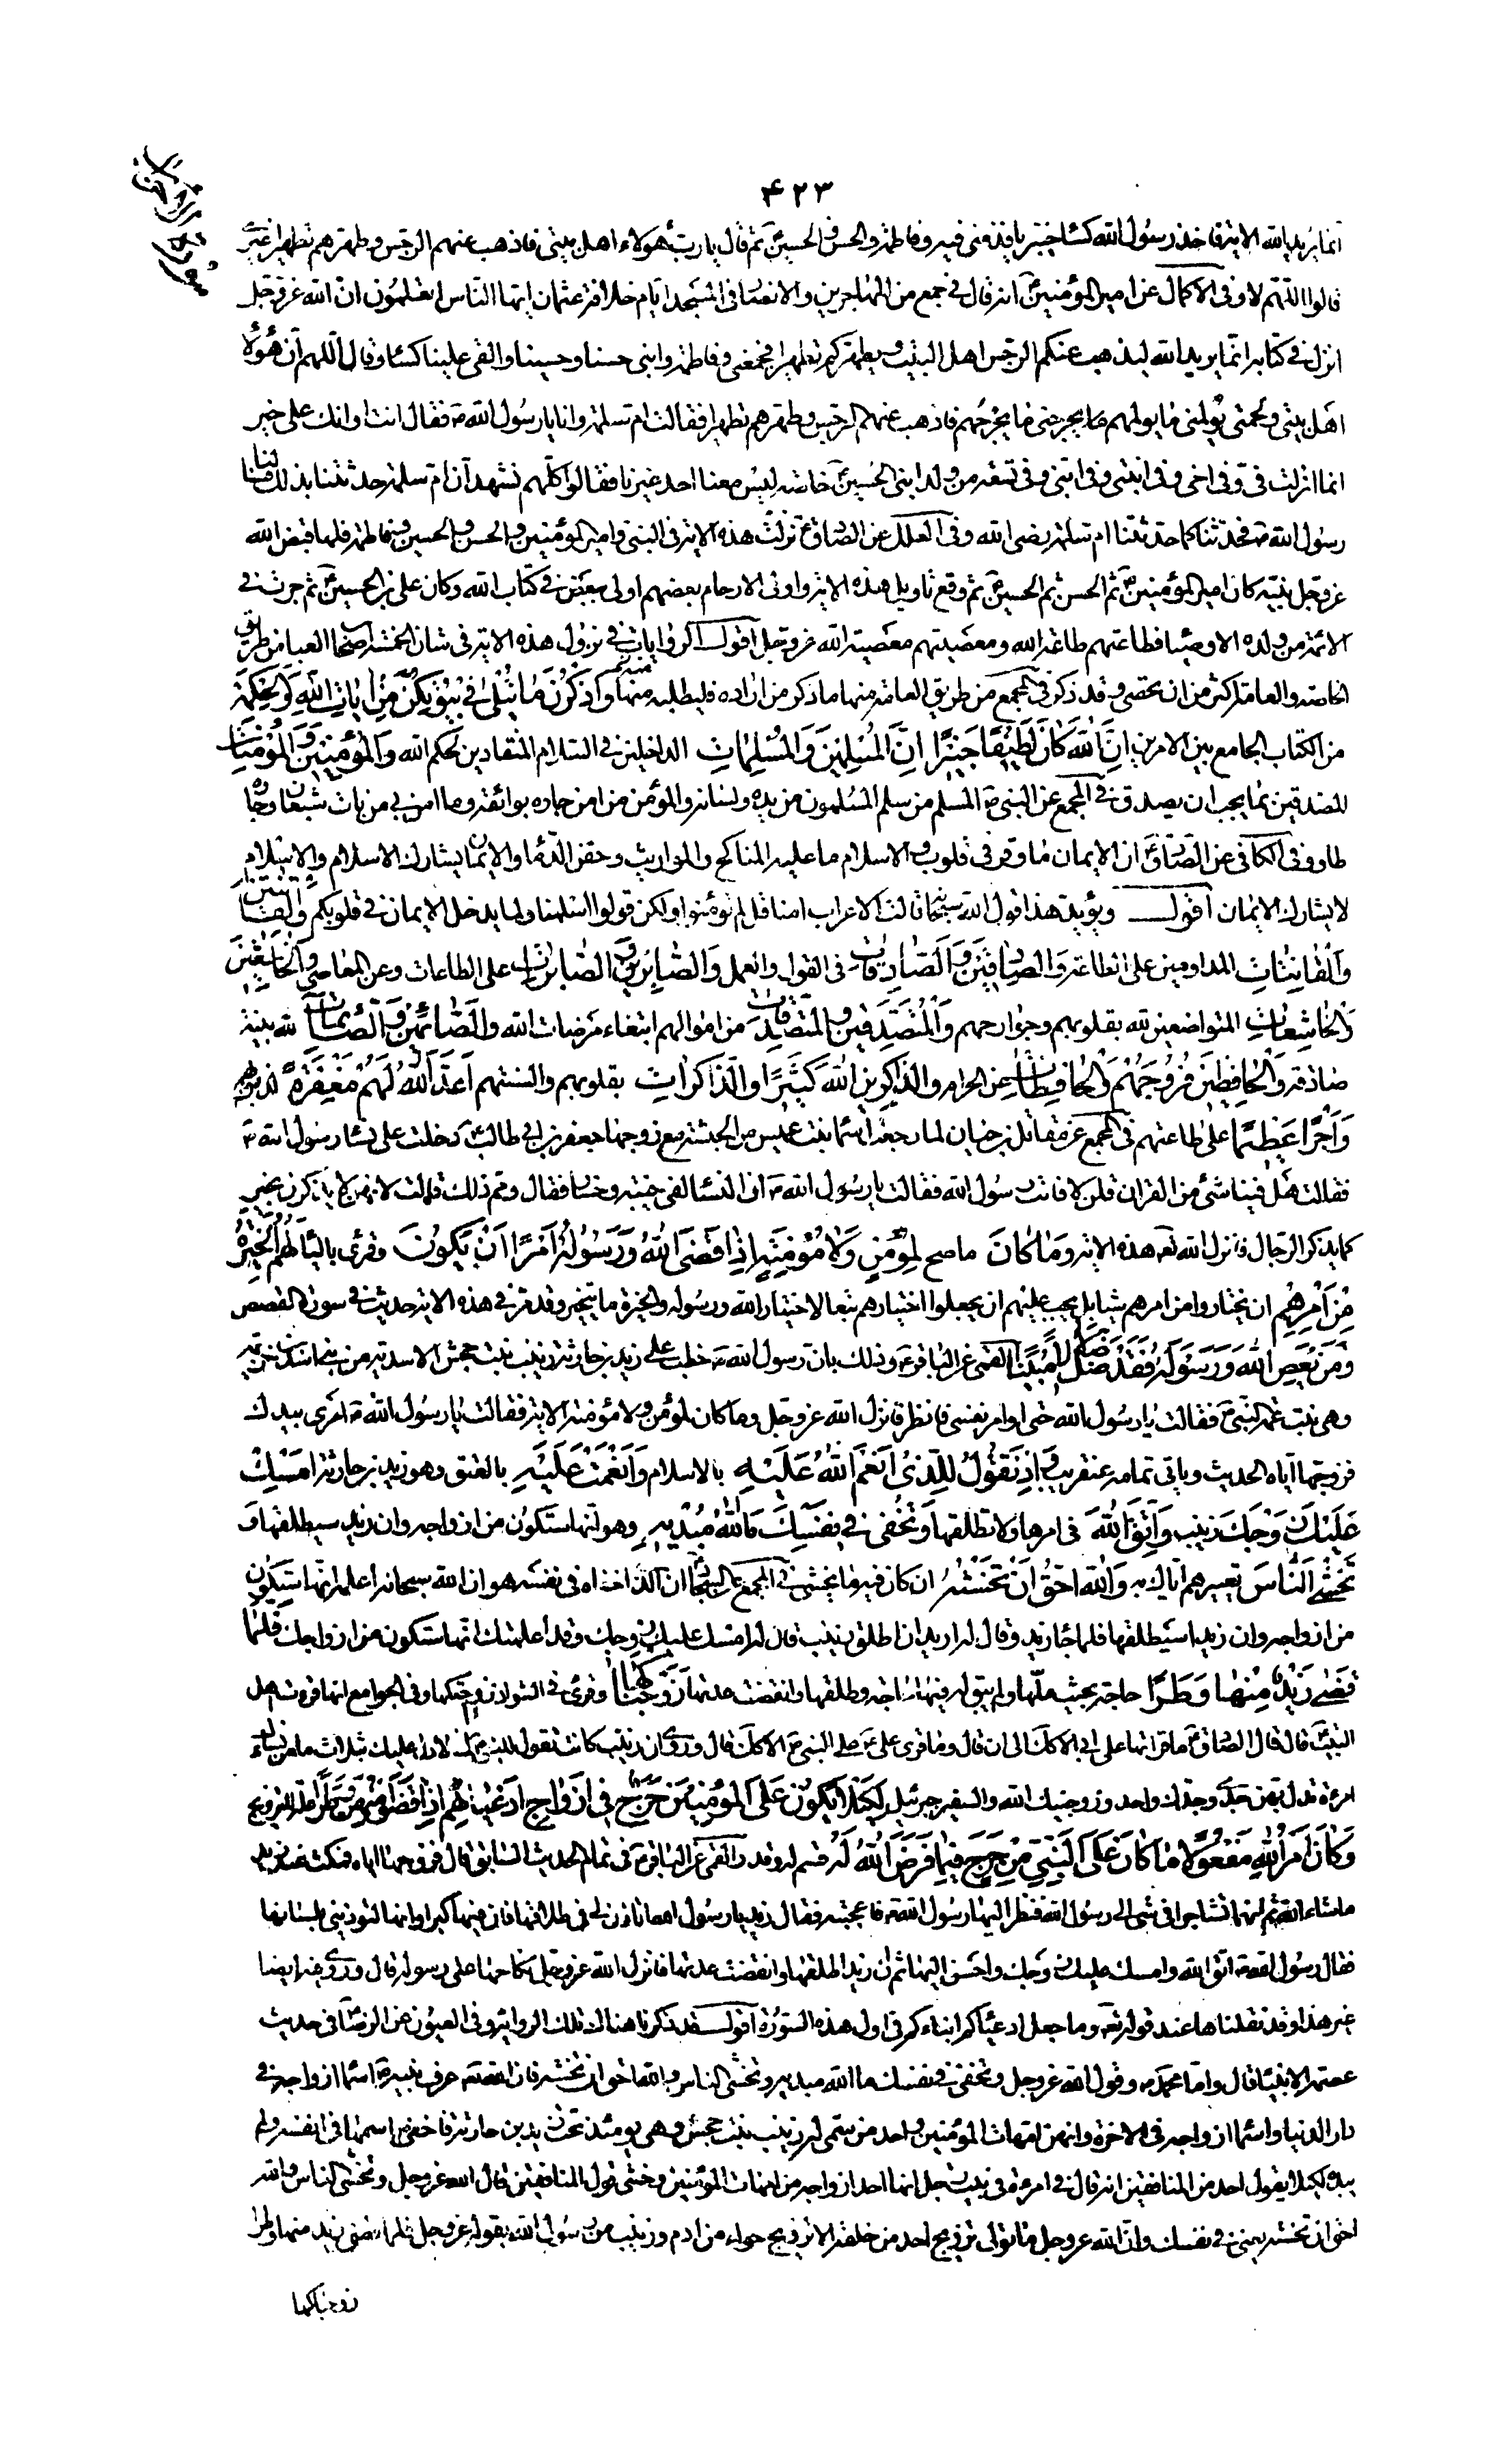 ۴۲۳
سورة الاحزاب
انما يريد الله الاية فاخذ رسول الله كساء خيبريا فلفني فيه وفاطمة والحسن والحسين ثم قال يا رب هؤلاء اهل بيتي فاذهب عنهم الرجس وطهرهم تطهيرا غيري
قالوا اللهم لا وفي الاكمال عن امير المؤمنين انه قال في جمع من المهاجرين والانصار في المسجد ايام خلافة عثمان ايها الناس اتعلمون ان الله عز وجل
انزل في كتابه انما يريد الله ليذهب عنكم الرجس اهل البيت ويطهركم تطهيرا فجمعني وفاطمة وابني حسنا وحسينا والقى علينا كساء وقال اللهم ان هؤلاء
اهل بيتي ولحمتي يؤلمني ما يؤلمهم ويجرحني ما يجرحهم فاذهب عنهم الرجس وطهرهم تطهيرا فقالت ام سلمة وانا يا رسول الله فقال انت او انك على خير
انما انزلت في وفي اخي وفي ابنتي وفي ابني وفي تسعة من ولد ابني الحسين خاصة ليس معنا احد غيرنا فقالوا كلهم نشهد ان ام سلمة حدثتنا بذلك فسالنا
رسول الله فحدثنا كما حدثتنا ام سلمة رضي الله وفي العلل عن الصادق نزلت هذه الاية في النبي وامير المؤمنين والحسن والحسين وفاطمة فلما قبض الله
عز وجل نبيه كان امير المؤمنين ثم الحسن ثم الحسين ثم وقع تاويل هذه الاية واولي الارحام بعضهم اولى ببعض في كتاب الله وكان علي بن الحسين ثم جرت في
الائمة من ولده الاوصياء فطاعتهم طاعة الله ومعصيتهم معصية الله عز وجل اقول الروايات في نزول هذه الاية في شان الخمسة اصحاب العبا من طريق
الخاصة والعامة اكثر من ان تحصى وقد ذكر في المجمع من طريق العامة منها ما ذكر من اراده فليطلبه منه واذكرن ما يتلى في بيوتكن من ايات الله والحكمة
من الكتاب الجامع بين الامرين ان الله كان لطيفا خبيرا ان المسلمين والمسلمات الداخلين في السلام المنقادين لحكم الله والمؤمنين والمؤمنات
المصدقين بما يجب ان يصدق في المجمع عن النبي المسلم من سلم المسلمون من يده ولسانه والمؤمن من امن جاره بوائقه وما امن بي من بات شبعان وجاره
طاو وفي الكافي عن الصادق ان الايمان ما وقر في قلوب والاسلام ما عليه المناكح والمواريث وحقن الدماء والايمان يشارك الاسلام والاسلام
لا يشارك الايمان اقول ويؤيد هذا قول الله سبحانه قالت الاعراب امنا قل لم تؤمنوا ولكن قولوا اسلمنا ولما يدخل الايمان في قلوبكم والقانتين
والقانتات المداومين على الطاعة والصادقين والصادقات في القول والعمل والصابرين والصابرات على الطاعات وعن المعاصي والخاشعين
والخاشعات المتواضعين لله بقلوبهم وجوارحهم والمتصدقين والمتصدقات من اموالهم ابتغاء مرضات الله والصائمين والصائمات لله بنية
صادقة والحافظين فروجهم والحافظات عن الحرام والذاكرين الله كثيرا والذاكرات بقلوبهم والسنتهم اعد الله لهم مغفرة لذنوبهم
واجرا عظيما على طاعتهم في المجمع عن مقاتل بن حيان لما رجعت اسماء بنت عميس من الحبشة مع زوجها جعفر بن ابي طالب دخلت على نساء رسول الله
فقالت هل فينا شئ من القران قلن لا فاتت رسول الله فقالت يا رسول الله ان النساء لفي خيبة وخسار فقال ومم ذلك قالت لانهن لا يذكرن بخير
كما يذكر الرجال فانزل الله تعالى هذه الاية وما كان ما صح لمؤمن ولا مؤمنة اذا قضى الله ورسوله امرا ان يكون وقرئ بالياء لهم الخيرة
من امرهم ان يختاروا من امرهم شيئا بل يجب عليهم ان يجعلوا اختيارهم تبعا لاختيار الله ورسوله والخيرة ما يتخير وقد مر في هذه الاية حديث في سورة القصص
ومن يعص الله ورسوله فقد ضل ضلالا مبينا القمي عن الباقر وذلك بان رسول الله خطب على زيد بن حارثة زينب بنت جحش الاسدية من بني اسد بن خزيمة
وهي بنت عمة النبي فقالت يا رسول الله حتى اوامر نفسي فانظر فانزل الله عز وجل وما كان لمؤمن ولا مؤمنة الاية فقالت يا رسول الله امري بيدك
فزوجها اياه الحديث وياتي تمامه عنقريب واذ تقول للذي انعم الله عليه بالاسلام وانعمت عليه بالعتق وهو زيد بن حارثة امسك
عليك زوجك زينب واتق الله في امرها ولا تطلقها وتخفي في نفسك ما الله مبديه وهو انها ستكون من ازواجه وان زيد سيطلقها و
تخشى الناس تعييرهم اياك به والله احق ان تخشيه ان كان فيه ما يخشى في المجمع عن السجاد ان الذي اخفاه في نفسه هو ان الله سبحانه اعلمه انها ستكون
من ازواجه وان زيدا سيطلقها فلما جاء زيد وقال له اريد ان اطلق زينب قال له امسك عليك زوجك وقد اعلمتك انها ستكون من ازواجك فلما
قضى زيد منها وطرا حاجة بحيث ملها ولم يبق له فيها حاجة وطلقها وانقضت عدتها زوجناكها وقرئ في الشواذ زوجتكها وفي الجوامع انها قراءة اهل
البيت قال قال الصادق ما قراتها على ابي الا كذلك الى ان قال وما قرئ علي على النبي الا كذلك قال وروي ان زينب كانت تقول للنبي اني لادل عليك بثلاث ما من نسائك
امرءة تدل بهن جدي وجدك واحد وزوجنيك الله والسفير جبرئيل لكيلا يكون على المؤمنين حرج في ازواج ادعيائهم اذا قضوا منهن وطرا علة للتزويج
وكان امر الله مفعولا ما كان على النبي من حرج فيما فرض الله له قسم له وقدر القمي عن الباقر في تمام الحديث السابق قال فزوجها اياه فمكثت عند زيد
ماشاء الله ثم انهما تشاجرا في شئ الى رسول الله فنظر اليها رسول الله فاعجبته فقال زيد يا رسول الله تاذن لي في طلاقها فان فيها كبرا وانها لتؤذيني بلسانها
فقال رسول الله اتق الله وامسك عليك زوجك واحسن اليها ثم ان زيدا طلقها وانقضت عدتها فانزل الله عز وجل نكاحها على رسوله قال وروي فيه ايضا
غير هذا وقد نقلناها عند قوله تعالى وما جعل ادعياءكم ابناءكم في اول هذه السورة اقول قد ذكرنا هنالك تلك الرواية وفي العيون عن الرضا في حديث
عصمة الانبياء قال واما محمد وقول الله عز وجل وتخفي في نفسك ما الله مبديه وتخشى الناس والله احق ان تخشيه فان الله تعالى عرف نبيه اسماء ازواجه في
دار الدنيا واسماء ازواجه في الاخرة وانهن امهات المؤمنين واحد من سمي له زينب بنت جحش وهي يومئذ تحت زيد بن حارثة فاخفى اسمها في نفسه ولم
يبده لكيلا يقول احد من المنافقين انه قال في امرءة في بيت رجل انها احد ازواجه من امهات المؤمنين وخشي قول المنافقين قال الله عز وجل وتخشى الناس والله
احق ان تخشيه يعني في نفسك وان الله عز وجل ما تولى تزويج احد من خلقه الا تزويج حواء من ادم وزينب من رسول الله بقوله عز وجل فلما قضى زيد منها وطرا
زوجناكها